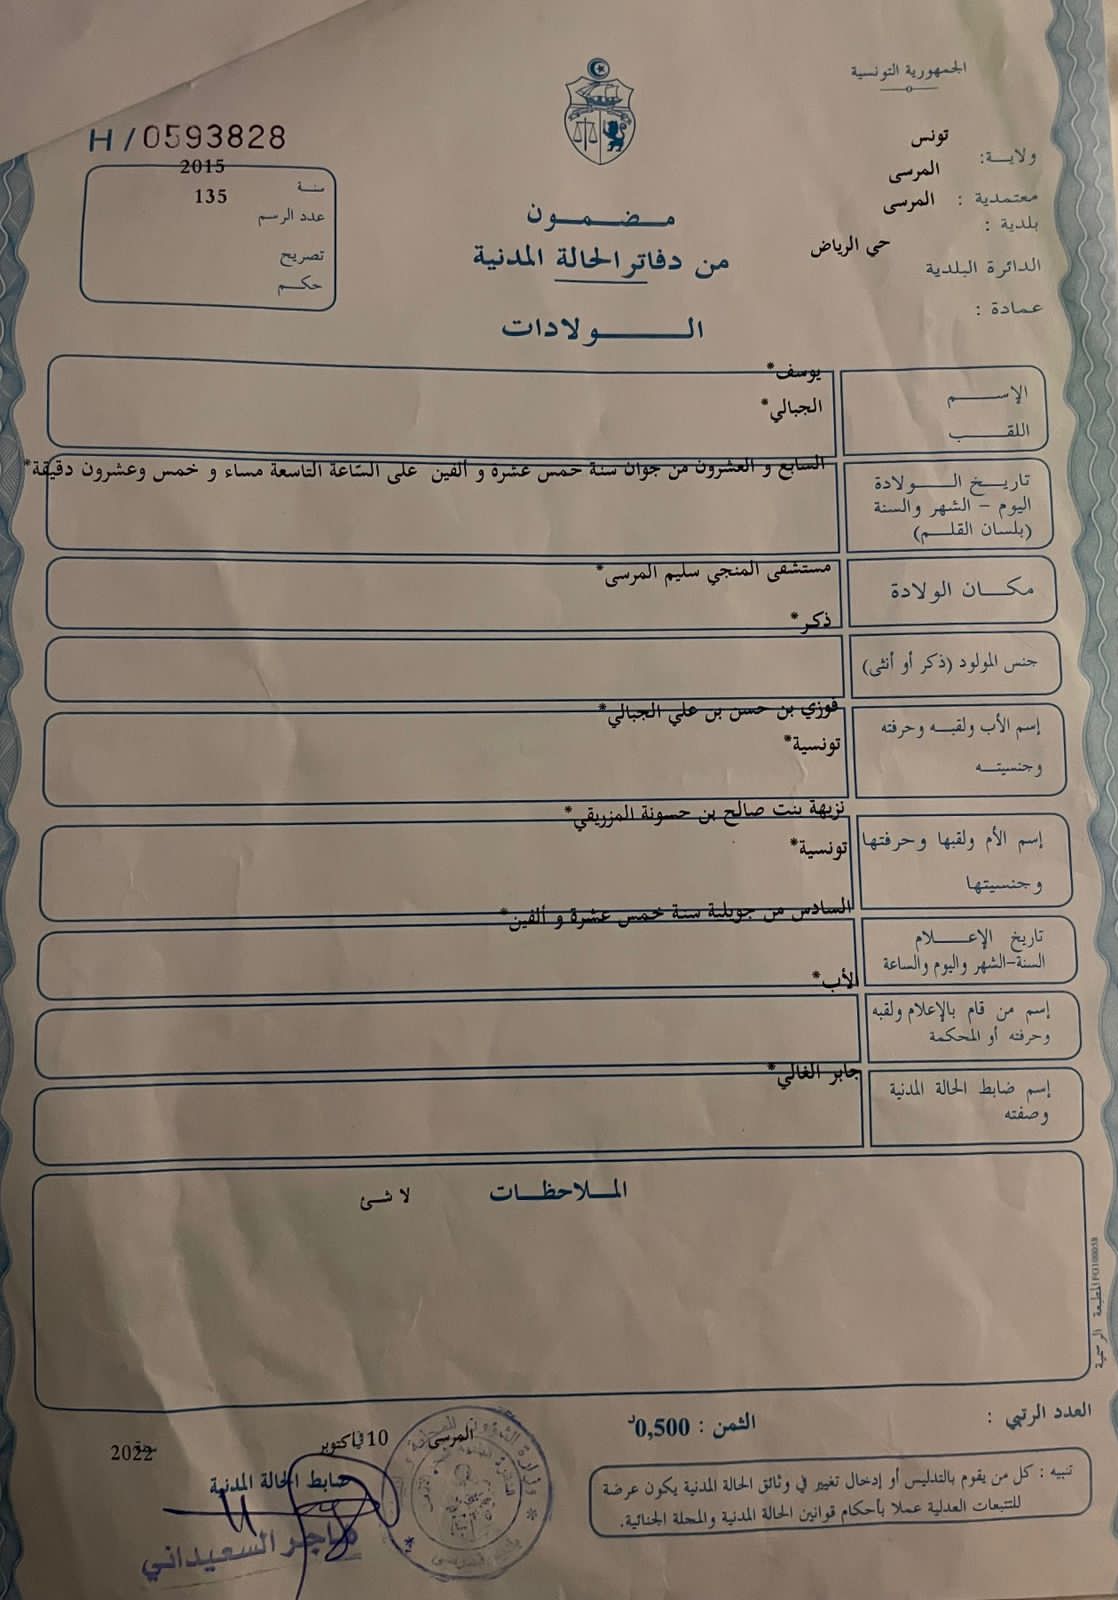 الجمهورية التونسية
ولاية: تونس
معتمدية : المرسى
بلدية : المرسى
الدائرة البلدية حي الرياض
عمادة :
H/0593828
سنة 2015
عدد الرسم 135
تصريح
حكم
مضمون
من دفاتر الحالة المدنية
الولادات
الإسم يوسف*
اللقب الجبالي*
تاريخ الولادة
اليوم - الشهر والسنة
(بلسان القلم)
السابع و العشرون من جوان سنة خمس عشرة و ألفين على السّاعة التاسعة مساء و خمس وعشرون دقيقة*
مكان الولادة مستشفى المنجي سليم المرسى*
جنس المولود (ذكر أو أنثى) ذكر*
إسم الأب ولقبه وحرفته فوزي بن حسن بن علي الجبالي*
وجنسيته تونسية*
إسم الأم ولقبها وحرفتها نزيهة بنت صالح بن حسونة المزريقي*
وجنسيتها تونسية*
تاريخ الإعلام السادس من جويلية سنة خمس عشرة و ألفين*
السنة-الشهر واليوم والساعة
إسم من قام بالإعلام ولقبه الأب*
وحرفته أو المحكمة
إسم ضابط الحالة المدنية جابر الغالي*
وصفته
الملاحظات لا شئ
المطبعة الرسمية
العدد الرتبي :
الثمن : 0,500د
المرسى في 10 أكتوبر سنة 2022
ضابط الحالة المدنية
هاجر السعيداني
تنبيه : كل من يقوم بالتدليس أو إدخال تغيير في وثائق الحالة المدنية يكون عرضة
للتتبعات العدلية عملا بأحكام قوانين الحالة المدنية والمجلة الجنائية.